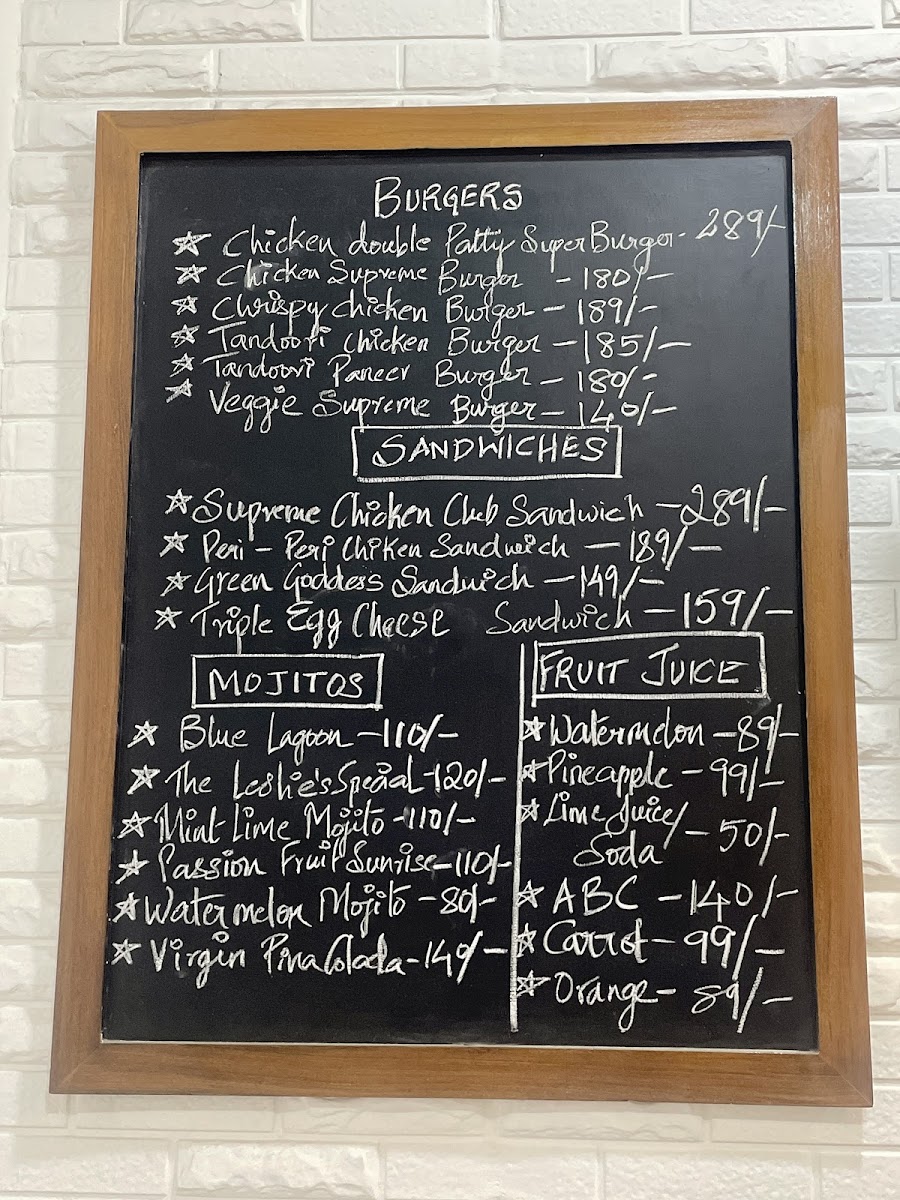 BURGERS
☆ Chicken double Patty Super Burger - 289/-
☆ Chicken Supreme Burger - 180/-
☆ Chrispy chicken Burger - 189/-
☆ Tandoori chicken Burger - 185/-
☆ Tandoori Paneer Burger - 180/-
☆ Veggie Supreme Burger - 140/-
SANDWICHES
☆ Supreme Chicken Club Sandwich - 289/-
☆ Peri - Peri Chiken Sandwich - 189/-
☆ Green Goddess Sandwich - 149/-
☆ Triple Egg Cheese Sandwich - 159/-
MOJITOS
☆ Blue Lagoon - 110/-
☆ The Leslie's Special - 120/-
☆ Mint Lime Mojito - 110/-
☆ Passion Fruit Sunrise - 110/-
☆ Watermelon Mojito - 80/-
☆ Virgin Pina Colada - 140/-
FRUIT JUICE
☆ Watermelon - 89/-
☆ Pineapple - 99/-
☆ Lime Juice/
Soda - 50/-
☆ ABC - 140/-
☆ Carrot - 99/-
☆ Orange - 89/-